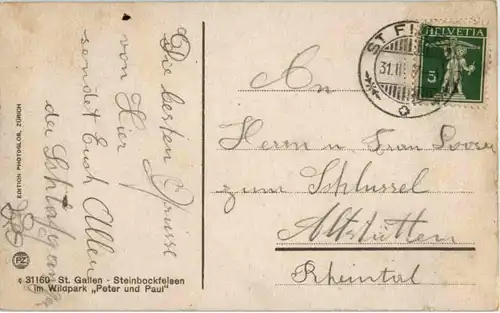 Die besten Grüsse
von Hier
sendet Euch Allen
der Schlafgan
EDITION PHOTOGLOB, ZÜRICH
PZ
c 31160 St. Gallen - Steinbockfelsen
im Wildpark „Peter und Paul"
ST. FI
31.II
HELVETIA
5
An
Herrn u. Frau Loser
zum Schlüssel
Altstätten
Rheintal